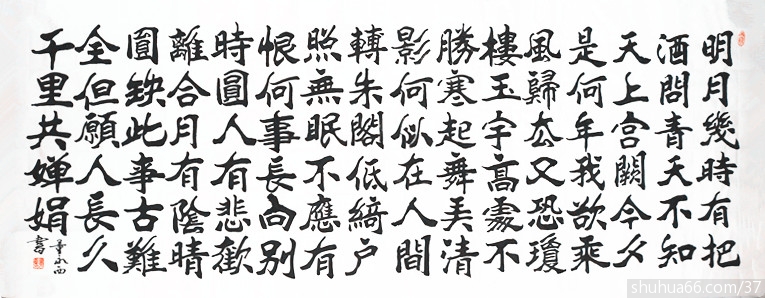 明月幾時有把
酒問青天不知
天上宫闕今夕
是何年我欲乘
風歸去又恐瓊
樓玉宇高處不
勝寒起舞弄清
影何似在人間
轉朱閣低綺户
照無眠不應有
恨何事長向别
時圓人有悲歡
離合月有陰晴
圓缺此事古難
全但願人長久
千里共嬋娟
書
shuhua66.com/37